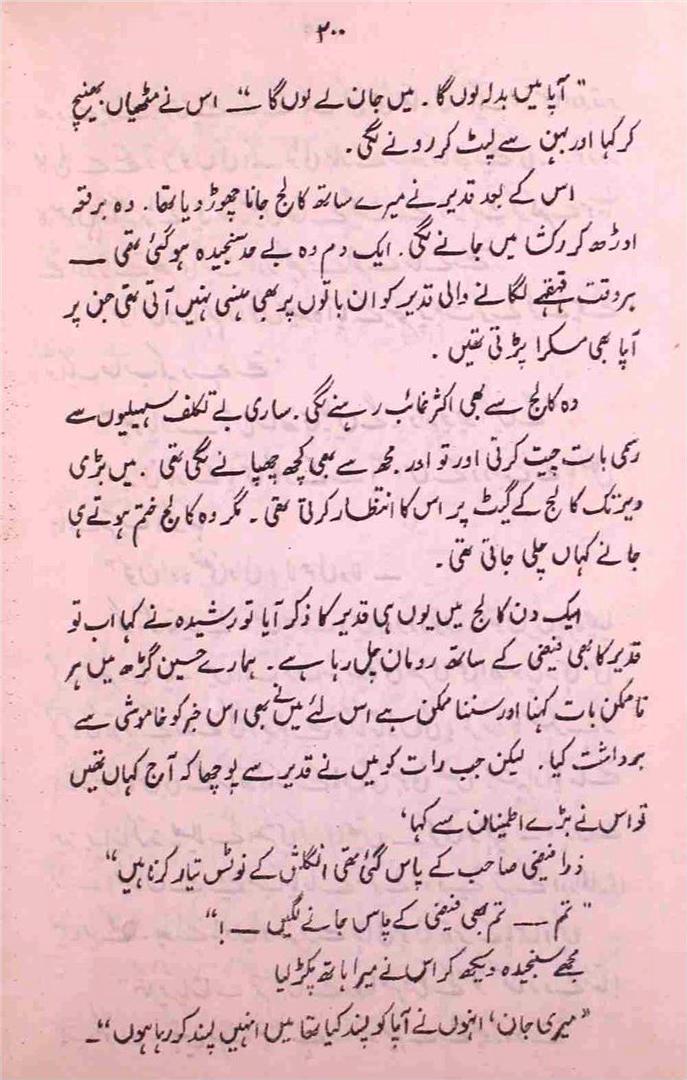 ۲۰۰
"آپا میں بدلہ لوں گا۔ میں جان لے لوں گا —" اس نے مٹھیاں بھینچ
کر کہا اور بہن سے لپٹ کر رونے لگی۔
اس کے بعد قدیر نے میرے ساتھ کالج جانا چھوڑ دیا تھا۔ وہ برقعہ
اوڑھ کر رکشا میں جانے لگی۔ ایک دم وہ بے حد سنجیدہ ہو گئی تھی —
ہر وقت قہقہے لگانے والی قدیر کو ان باتوں پر بھی ہنسی نہیں آتی تھی جن پر
آپا بھی مسکرا پڑتی تھیں۔
وہ کالج سے بھی اکثر غائب رہنے لگی۔ ساری بے تکلف سہیلیوں سے
رسمی بات چیت کرتی اور تو اور مجھ سے بھی کچھ چھپانے لگی تھی۔ میں بڑی
دیر تک کالج کے گیٹ پر اس کا انتظار کرتی تھی۔ مگر وہ کالج ختم ہوتے ہی
جانے کہاں چلی جاتی تھی۔
ایک دن کالج میں یوں ہی قدیر کا ذکر آیا تو رشیدہ نے کہا اب تو
قدیر کا بھی فیضی کے ساتھ رومان چل رہا ہے۔ ہمارے حسین گڑھ میں ہر
ناممکن بات کہنا اور سننا ممکن ہے اس لئے میں نے بھی اس خبر کو خاموشی سے
برداشت کیا۔ لیکن جب رات کو میں نے قدیر سے پوچھا کہ آج کہاں تھیں
تو اس نے بڑے اطمینان سے کہا،
ذرا فیضی صاحب کے پاس گئی تھی انگلش کے نوٹس تیار کرنا ہیں"
"تم — تم بھی فیضی کے پاس جانے لگیں —!"
مجھے سنجیدہ دیکھ کر اس نے میرا ہاتھ پکڑ لیا
"میری جان، انہوں نے آپا کو پسند کیا تھا میں انہیں پسند کر رہا ہوں"۔